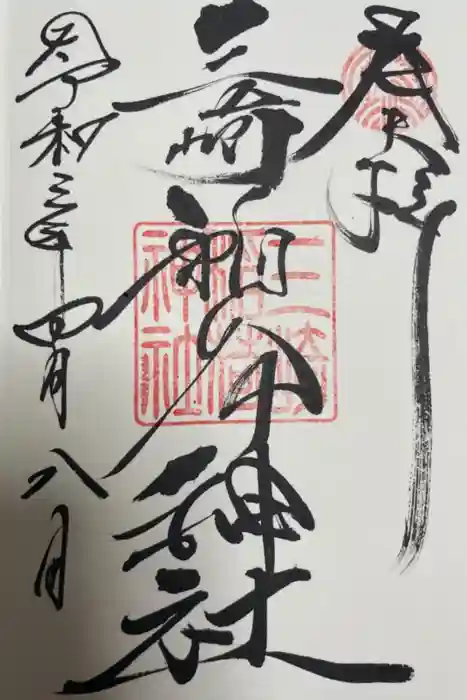 奉拝
三崎稲荷神社
令和三年四月八日
三崎
稲荷
神社